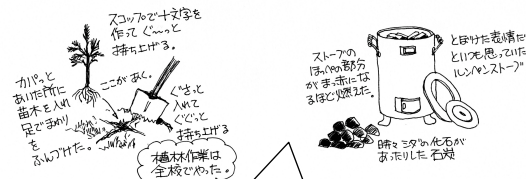 スコップで十文字を
作って ぐ〜っと
持ち上げる。
カパっと
あいた所に
苗木を入れ
足でまわり
を
ふんづけた。
ここがあく。
ぐさっと
入れて
ぐぐっと
持ち上げる
植林作業は
全校でやった。
ストーブの
ほっぺの部分
がまっ赤にな
るほど燃えた。
とぼけた表情だ
といつも思っていた
ルンペンストーブ
時々シダの化石が
あったりした石炭